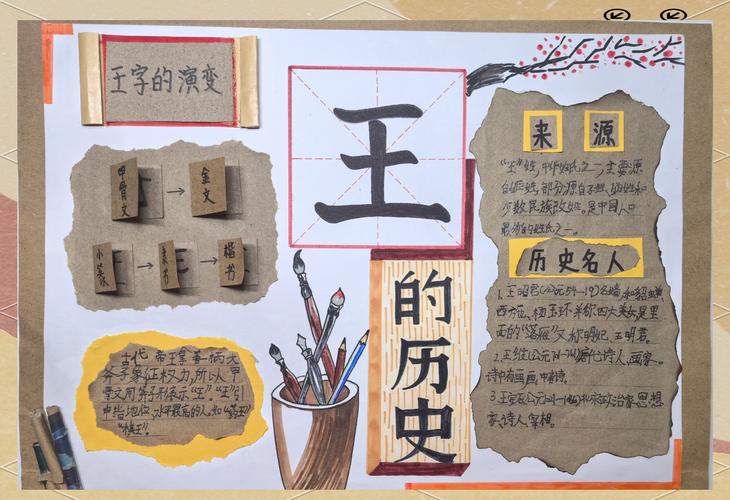 王字的演变
甲骨文
金文
小篆
隶书
楷书
古代帝王累着柄大
斧子象征权力,所以甲
骨文用斧子形表示“王”,“王”引
申指地位、水平最高的人,如“药王”
“棋王”。
王
的历史
来源
“王”姓,中华姓氏之一,主要源
自姬姓,部分源自子姓、妫姓和
少数民族改姓。是中国人口
最多的姓氏之一。
历史名人
1.王昭君(公元54—19)名嫱,和貂蝉
西施、杨玉环并称四大美女是里
面的“落雁”又称明妃、王明君。
2.王维 诗人、画家。
诗中有画,画中有诗。
3.王安石 北宋政治家、思想
家、诗人、宰相。